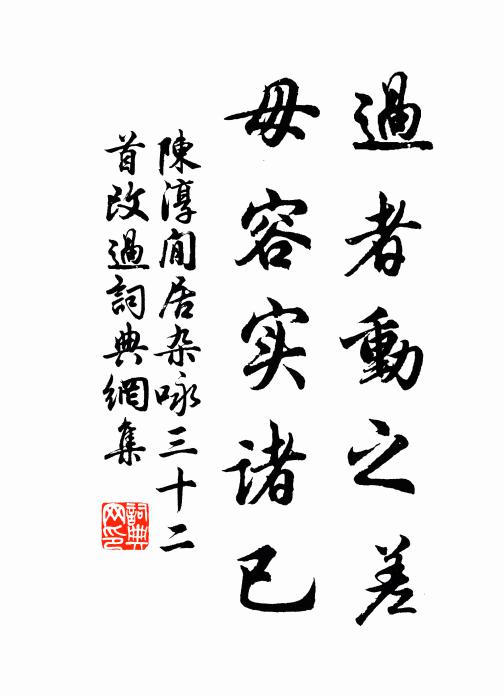 過者動之差
毋容实诸已
陳淳閒居杂咏三十二
首改過詞典網集
詞典网印